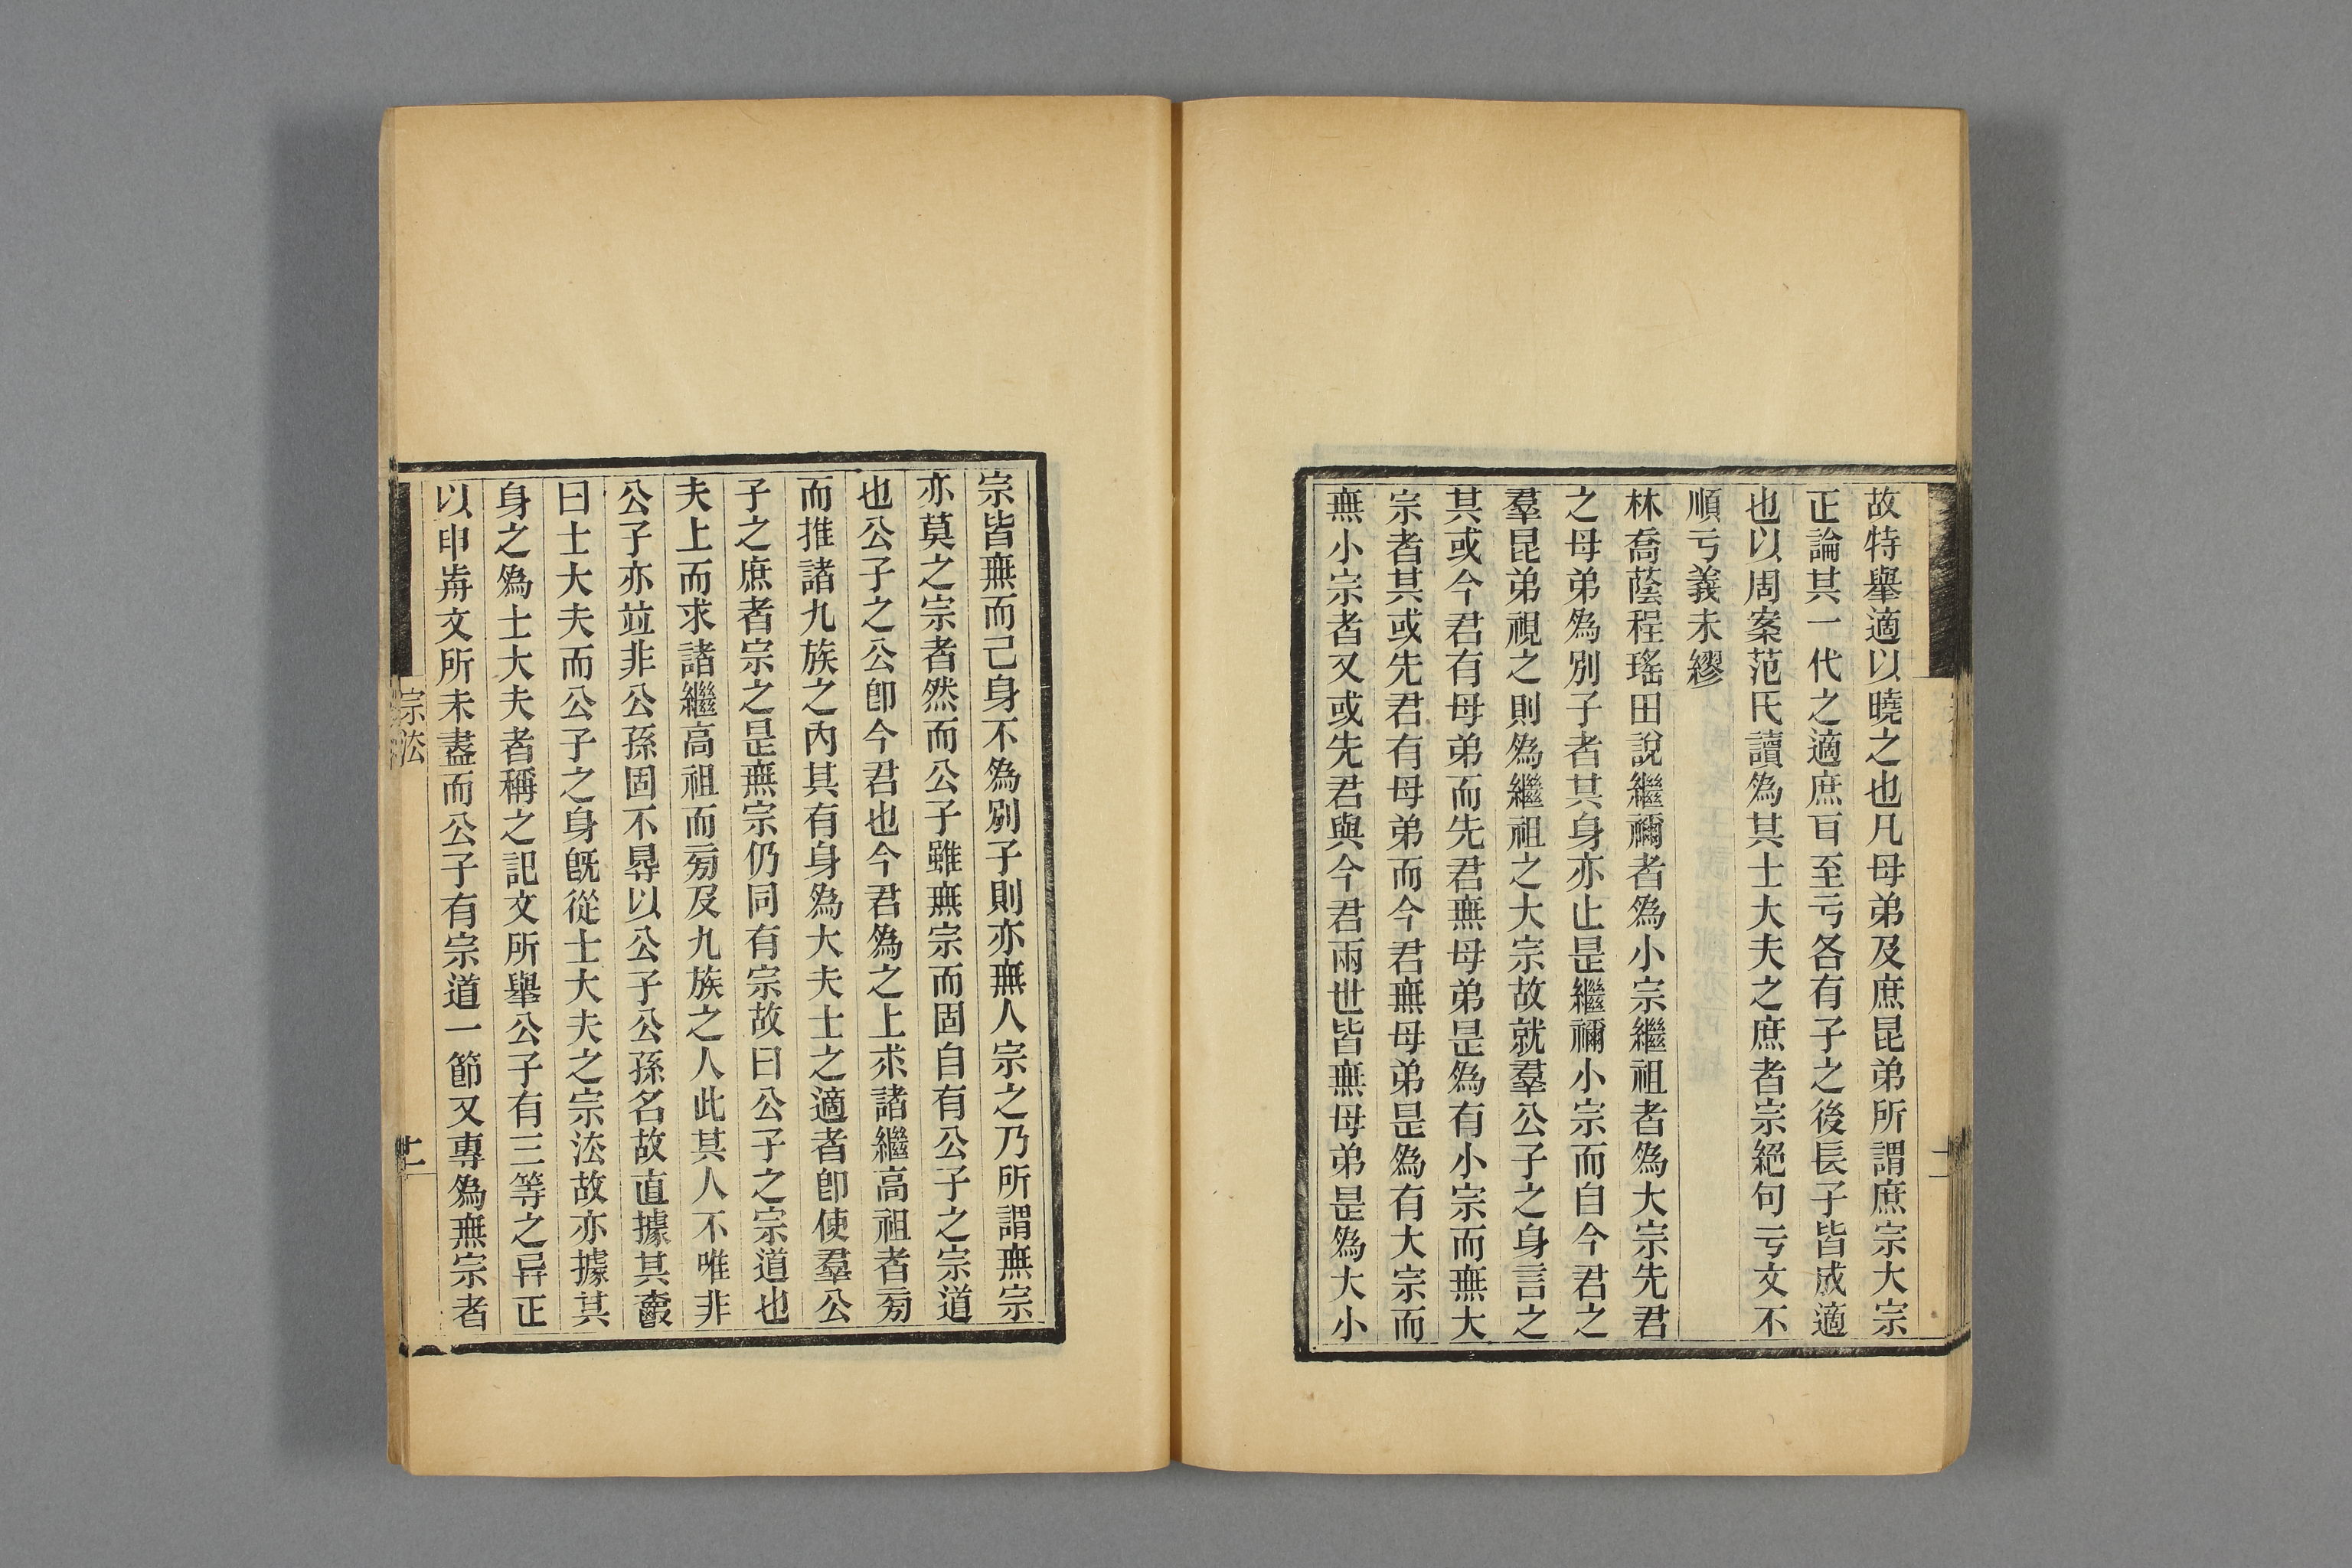 故特舉適以曉之也凡母弟及庶昆弟所謂庶宗大宗
正論其一代之適庶百至亏各有子之後長子皆成適
也以周案范氏讀爲其士大夫之庶者宗絕句亏文不
順亏義未繆
林喬蔭程瑤田說繼禰者爲小宗繼祖者爲大宗先君
之母弟爲別子者其身亦止是繼禰小宗而自今君之
羣昆弟視之則爲繼祖之大宗故就羣公子之身言之
其或今君有母弟而先君無母弟是爲有小宗而無大
宗者其或先君有母弟而今君無母弟是爲有大宗而
無小宗者又或先君與今君兩世皆無母弟是爲大小
宗皆無而己身不爲別子則亦無人宗之乃所謂無宗
亦莫之宗者然而公子雖無宗而固自有公子之宗道
也公子之公卽今君也今君爲之上求諸繼高祖者㫄
而推諸九族之內其有身爲大夫士之適者卽使羣公
子之庶者宗之是無宗仍同有宗故曰公子之宗道也
夫上而求諸繼高祖而㫄及九族之人此其人不唯非
公子亦竝非公孫固不㝵以公子公孫名故直據其𧶠
曰士大夫而公子之身旣從士大夫之宗法故亦據其
身之爲士大夫者稱之記文所舉公子有三等之异正
以申歬文所未盡而公子有宗道一節又專爲無宗者
宗法